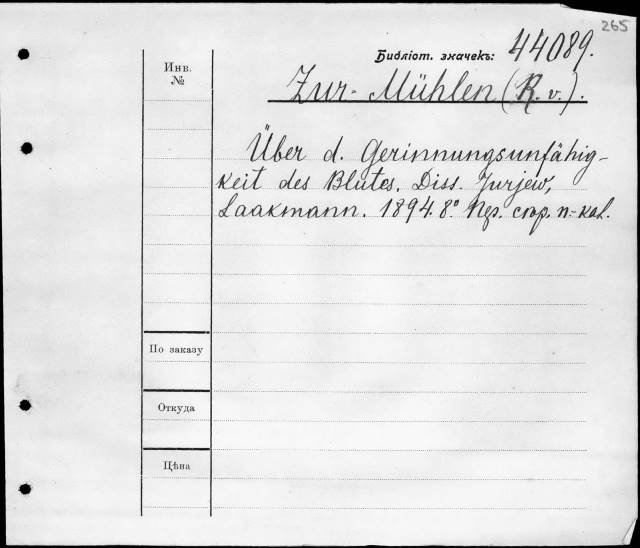 265
Библіот. значекъ: 44089.
Инв. №
Zur-Mühlen (R. v.).
Über d. Gerinnungsunfähig-
keit des Blutes. Diss. Jurjew,
Laakmann. 1894. 8° Пер. стар. п.-кал.
По заказу
Откуда
Цѣна